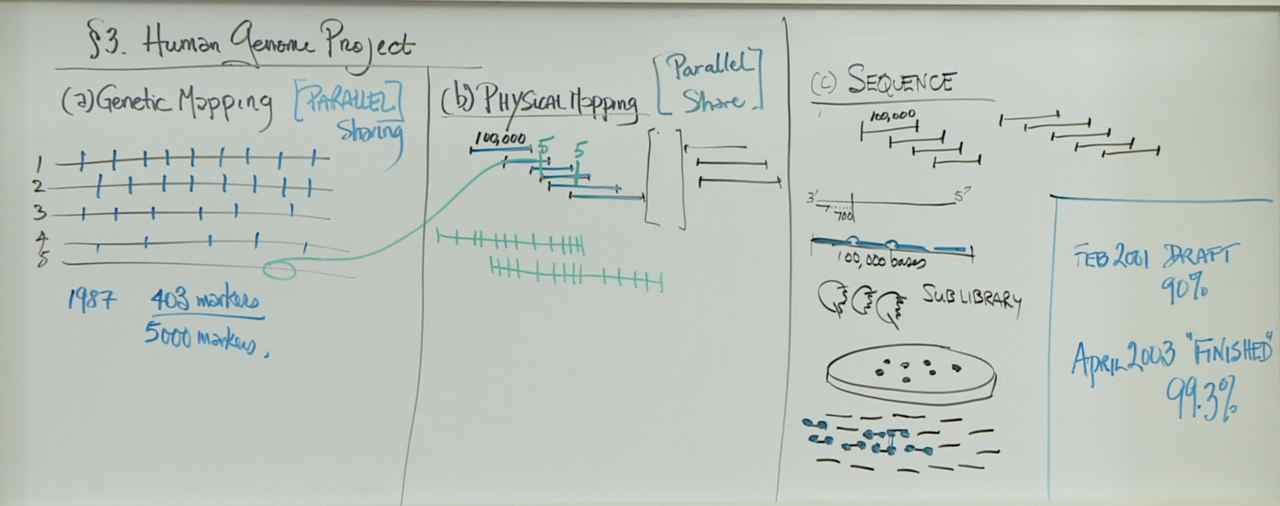 §3. Human Genome Project
(a) Genetic Mapping
[PARALLEL]
Sharing
1
2
3
4
5
1987
403 markers
5000 markers.
(b) PHYSICAL Mapping
[Parallel]
Share.
100,000
5 5
(c) SEQUENCE
100,000
3' 5'
700
100,000 bases
SUB LIBRARY
FEB 2001 DRAFT
90%
APRIL 2003 "FINISHED"
99.3%